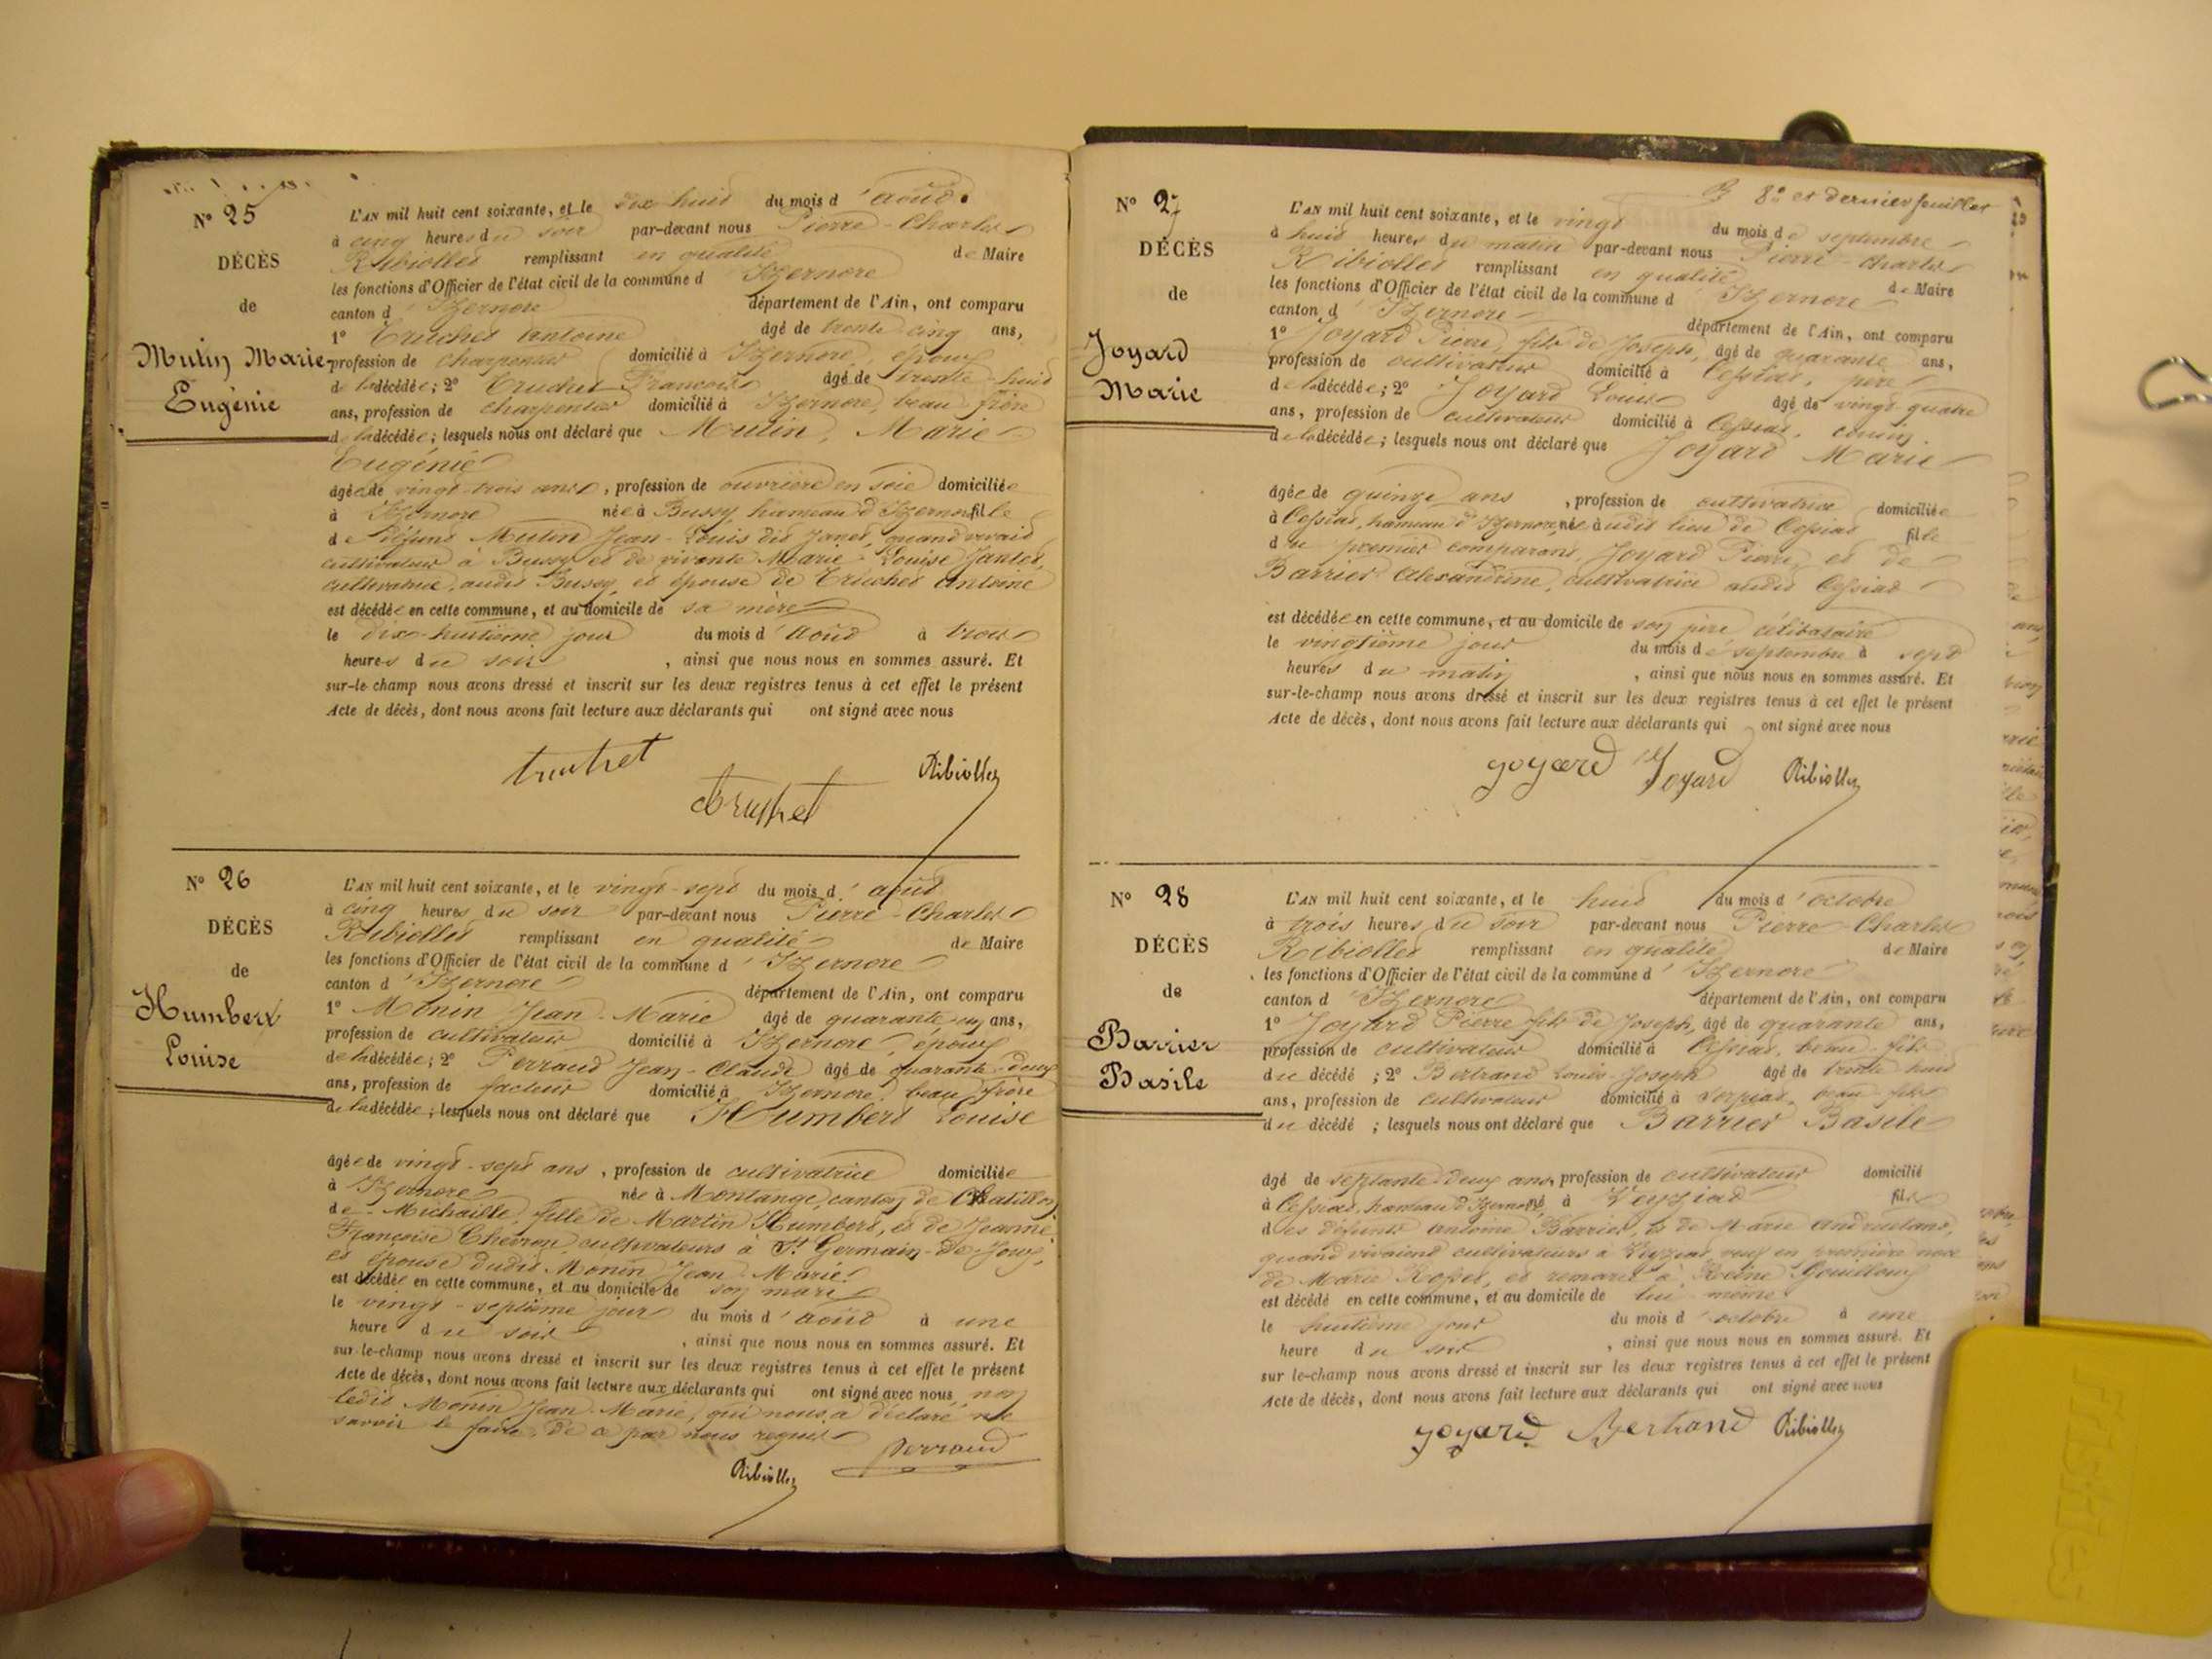 N° 25
DÉCÈS
de
Mutin Marie
Eugénie
L'AN mil huit cent soixante, et le dix huit du mois d'août.
à cinq heures du soir par-devant nous Pierre-Charles
Ribiollet remplissant en qualité de Maire
les fonctions d'Officier de l'état civil de la commune d'Izernore
canton d'Izernore département de l'Ain, ont comparu
1° Truchet Antoine âgé de trente cinq ans,
profession de charpentier domicilié à Izernore, époux
de la décédée; 2° Truchet François âgé de trente-huit
ans, profession de charpentier domicilié à Izernore, beau frère
de la décédée; lesquels nous ont déclaré que Mutin, Marie
Eugénie
âgée de vingt-trois ans, profession de ouvrière en soie domiciliée
à Izernore née à Bussy hameau d'Izernore fille
de défunt Mutin Jean-Louis dit Janet, quand vivait
cultivateur à Bussy et de vivante Marie-Louise Jantet,
cultivatrice, audit Bussy, et épouse de Truchet Antoine
est décédée en cette commune, et au domicile de sa mère
le dix-huitième jour du mois d'août à trois
heures du soir, ainsi que nous nous en sommes assuré. Et
sur-le-champ nous avons dressé et inscrit sur les deux registres tenus à cet effet le présent
Acte de décès, dont nous avons fait lecture aux déclarants qui ont signé avec nous
truchet
Truchet
Ribiollet
N° 26
DÉCÈS
de
Humbert
Louise
L'AN mil huit cent soixante, et le vingt-sept du mois d'août
à cinq heures du soir par-devant nous Pierre-Charles
Ribiollet remplissant en qualité de Maire
les fonctions d'Officier de l'état civil de la commune d'Izernore
canton d'Izernore département de l'Ain, ont comparu
1° Monin Jean-Marie âgé de quarante-un ans,
profession de cultivateur domicilié à Izernore, époux
de la décédée; 2° Perraud Jean-Claude âgé de quarante-deux
ans, profession de facteur domicilié à Izernore, beau frère
de la décédée; lesquels nous ont déclaré que Humbert Louise
âgée de vingt-sept ans, profession de cultivatrice domiciliée
à Izernore née à Montange, canton de Chatillon
de-Michaille, fille de Martin Humbert, et de Jeanne
Françoise Chevron, cultivateurs à St Germain-de-Joux,
et épouse dudit Monin Jean-Marie.
est décédée en cette commune, et au domicile de son mari
le vingt-septième jour du mois d'août à une
heure du soir, ainsi que nous nous en sommes assuré. Et
sur-le-champ nous avons dressé et inscrit sur les deux registres tenus à cet effet le présent
Acte de décès, dont nous avons fait lecture aux déclarants qui ont signé avec nous, non
ledit Monin Jean-Marie, qui nous a déclaré ne
savoir le faire, de ce par nous requis
Perraud
Ribiollet
8e et dernier feuillet
N° 27
DÉCÈS
de
Joyard
Marie
L'AN mil huit cent soixante, et le vingt du mois de septembre
à huit heures du matin par-devant nous Pierre-Charles
Ribiollet remplissant en qualité de Maire
les fonctions d'Officier de l'état civil de la commune d'Izernore
canton d'Izernore département de l'Ain, ont comparu
1° Joyard Pierre, fils de Joseph, âgé de quarante ans,
profession de cultivateur domicilié à Cessiat, père
de la décédée; 2° Joyard Louis âgé de vingt-quatre
ans, profession de cultivateur domicilié à Cessiat, cousin
de la décédée; lesquels nous ont déclaré que Joyard Marie
âgée de quinze ans, profession de cultivatrice domiciliée
à Cessiat, hameau d'Izernore née audit lieu de Cessiat fille
du premier comparant, Joyard Pierre, et de
Barrier Alexandrine, cultivatrice audit Cessiat
est décédée en cette commune, et au domicile de son père célibataire
le vingtième jour du mois de septembre à sept
heures du matin, ainsi que nous nous en sommes assuré. Et
sur-le-champ nous avons dressé et inscrit sur les deux registres tenus à cet effet le présent
Acte de décès, dont nous avons fait lecture aux déclarants qui ont signé avec nous
joyard Joyard Ribiollet
N° 28
DÉCÈS
de
Barrier
Basile
L'AN mil huit cent soixante, et le huit du mois d'octobre
à trois heures du soir par-devant nous Pierre-Charles
Ribiollet remplissant en qualité de Maire
les fonctions d'Officier de l'état civil de la commune d'Izernore
canton d'Izernore département de l'Ain, ont comparu
1° Joyard Pierre fils de Joseph, âgé de quarante ans,
profession de cultivateur domicilié à Cessiat, beau-fils
du décédé; 2° Bertrand Louis-Joseph âgé de trente huit
ans, profession de cultivateur domicilié à beau fils
du décédé; lesquels nous ont déclaré que Barrier Basile
âgé de septante-deux ans, profession de cultivateur domicilié
à Cessiat, hameau d'Izernore, né à Veyziat fils
des défunts Antoine Barrier, et de Marie
quand vivaient cultivateurs à Veyziat, veuf en première noce
de Marie et remarié à Reine
est décédé en cette commune, et au domicile de lui même
le huitième jour du mois d'octobre à une
heure du soir, ainsi que nous nous en sommes assuré. Et
sur-le-champ nous avons dressé et inscrit sur les deux registres tenus à cet effet le présent
Acte de décès, dont nous avons fait lecture aux déclarants qui ont signé avec nous
joyard Bertrand Ribiollet